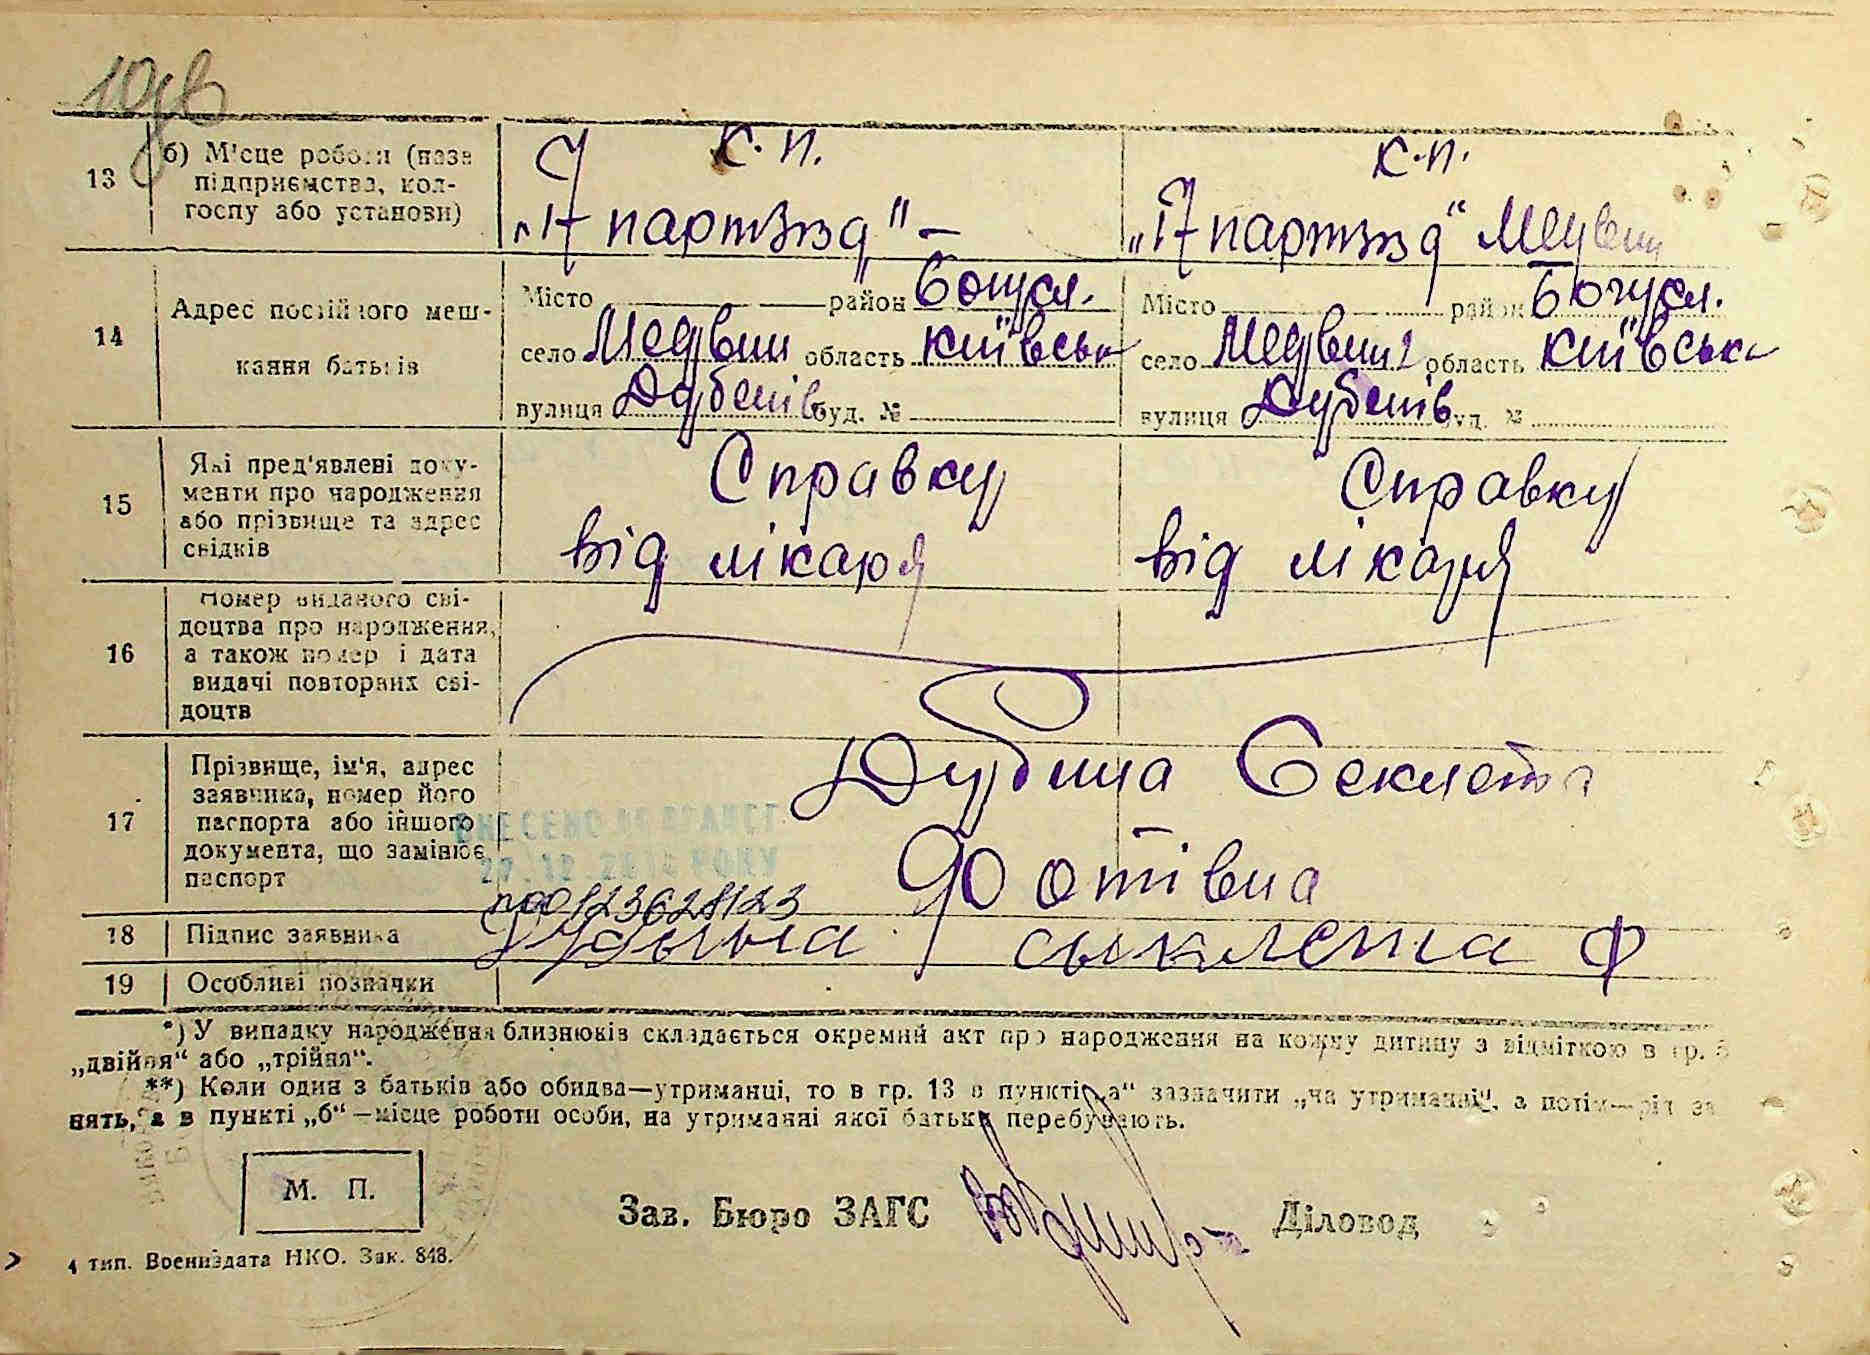 13 б) Місце роботи (назва підприємства, колгоспу або установи)
К.П. „17 партзізд" –
К.П. „17 партзізд" Медвин
14 Адрес постійного мешкання батьків
Місто район Богусл.
село Медвин область Київськ
вулиця Дубенів буд. №
Місто район Богусл.
село Медвин область Київська
вулиця Дубенів буд. №
15 Які пред'явлені документи про народження або прізвище та адрес свідків
Справку від лікаря
Справку від лікаря
16 Номер виданого свідоцтва про народження, а також номер і дата видачі повторних свідоцтв
17 Прізвище, ім'я, адрес заявника, номер його паспорта або іншого документа, що замінює паспорт
Дубина Секлета
Фотівна
ВНЕСЕНО
РОКУ
00123628123
18 Підпис заявника
Дубына сыклета Ф
19 Особливі позначки
*) У випадку народження близнюків складається окремий акт про народження на кожну дитину з відміткою в гр. 5
„двійня" або „трійня".
**) Коли один з батьків або обидва—утриманці, то в гр. 13 в пункті „а" зазначити „на утриманні", а потім—рід за
нять, а в пункті „б"—місце роботи особи, на утриманні якої батьки перебувають.
М. П.
Зав. Бюро ЗАГС
Діловод
4 тип. Воениздата НКО. Зак. 848.